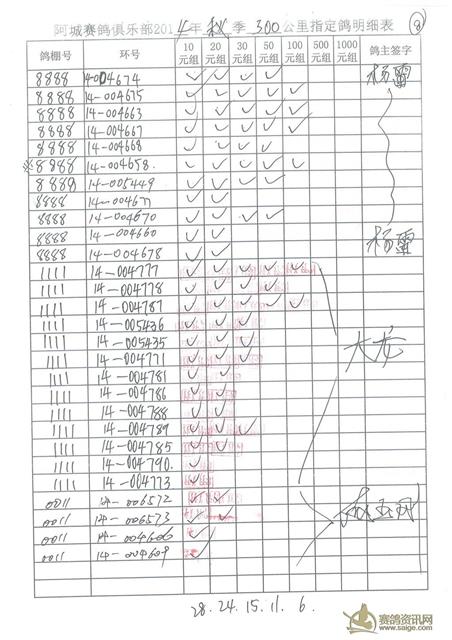 阿城赛鸽俱乐部2014年秋季300公里指定鸽明细表 ⑧
鸽棚号 环号 10元组 20元组 30元组 50元组 100元组 1000元组 鸽主签字
8888 14-004674 ✓ ✓ ✓ ✓
8888 14-004675 ✓ ✓ ✓ ✓ ✓
8888 14-004663 ✓ ✓ ✓ ✓ ✓
8888 14-004667 ✓ ✓ ✓ ✓ ✓
8888 14-004668 ✓ ✓ ✓ ✓
8888 14-004658 ✓ ✓ ✓ ✓ ✓
8888 14-005449 ✓ ✓
8888 14-004671 ✓ ✓
8888 14-004670 ✓ ✓ ✓ ✓
8888 14-004660 ✓ ✓
8888 14-004678 ✓ ✓
1111 14-004777 ✓ ✓ ✓ ✓ ✓
1111 14-004778 ✓ ✓ ✓ ✓
1111 14-004787 ✓ ✓ ✓ ✓ ✓
1111 14-005436 ✓ ✓ ✓
1111 14-005435 ✓ ✓ ✓
1111 14-004771 ✓ ✓ ✓
1111 14-004781 ✓ ✓
1111 14-004786 ✓ ✓
1111 14-004788 ✓ ✓
1111 14-004789 ✓ ✓ ✓
1111 14-004785 ✓ ✓
1111 14-004790 ✓
1111 14-004773 ✓
0011 14-006572 ✓ ✓
0011 14-006573 ✓ ✓
0011 14-004606 ✓
0011 14-004609 ✓
28.24.15.11.6.
赛鸽资讯网
www.saige.com